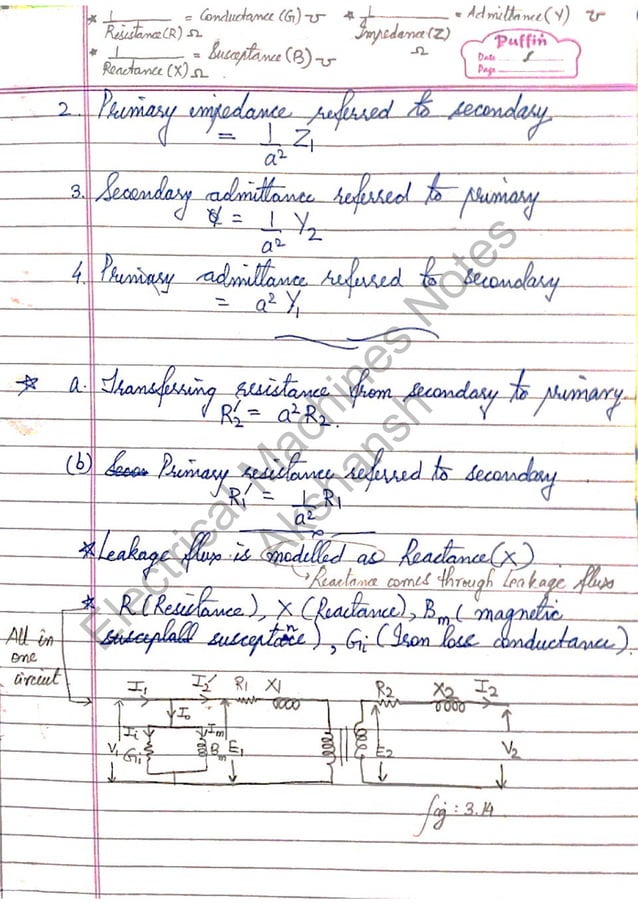 * 1/Resistance(R) Ω = Conductance(G) ℧ * 1/Impedance(Z) Ω = Admittance(Y) ℧
* 1/Reactance(X) Ω = Susceptance(B) ℧
Puffin
Date
Page
2. Primary impedance referred to secondary
= 1/a² Z₁
3. Secondary admittance referred to primary
= 1/a² Y₂
4. Primary admittance referred to secondary
= a² Y₁
* a. Transferring resistance from secondary to primary
R₂' = a² R₂.
(b) Primary resistance referred to secondary
R₁' = 1/a² R₁
* Leakage flux is modelled as Reactance(X)
→ Reactance comes through Leakage flux
* R(Resistance), X(Reactance), Bm( magnetic
susceptance), Gi(Iron loss conductance).
All in
one
circuit
I₁ I₂' R₁ X₁ R₂ X₂ I₂
I₀
Ii Im
V₁ Gi Bm E₁ E₂ V₂
fig: 3.14
Electrical Machines Notes
Akshansh